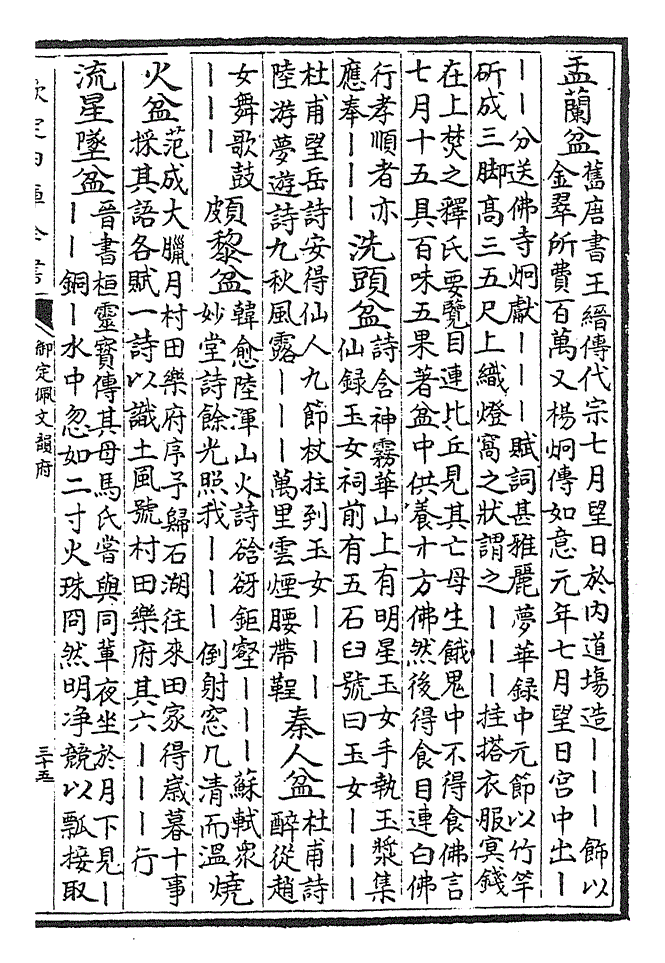 盂蘭盆
舊唐書王縉傳代宗七月望日於内道場造丨丨丨飾以
金翠所費百萬又楊炯傳如意元年七月望日宫中出丨
丨丨分送佛寺炯獻丨丨丨賦詞甚雅麗夢華録中元節以竹竿
斫成三脚髙三五尺上織燈窩之狀謂之丨丨丨挂搭衣服㝠錢
在上焚之釋氏要覽目連比丘見其亡母生餓鬼中不得食佛言
七月十五具百味五果著盆中供養十方佛然後得食目連白佛
行孝順者亦
應奉丨丨丨
洗頭盆
詩含神霧華山上有明星玉女手執玉漿集
仙録玉女祠前有五石臼號曰玉女丨丨丨
杜甫望岳詩安得仙人九節杖拄到玉女丨丨丨
陸游夢遊詩九秋風露丨丨丨萬里雲煙腰帶鞓
秦人盆
杜甫詩
醉從趙
女舞歌鼓
丨丨丨
頗黎盆
韓愈陸渾山火詩谽呀鉅壑丨丨丨蘇軾衆
妙堂詩餘光照我丨丨丨倒射窓几清而溫
燒
火盆
范成大臘月村田樂府序予歸石湖往來田家得歲暮十事
採其語各賦一詩以識土風號村田樂府其六丨丨丨行
流星墜盆
晉書桓靈寳傳其母馬氏嘗與同輩夜坐於月下見丨
丨丨銅丨水中忽如二寸火珠冏然明净競以瓢接取
欽定四庫全書
御定佩文韻府
三十五